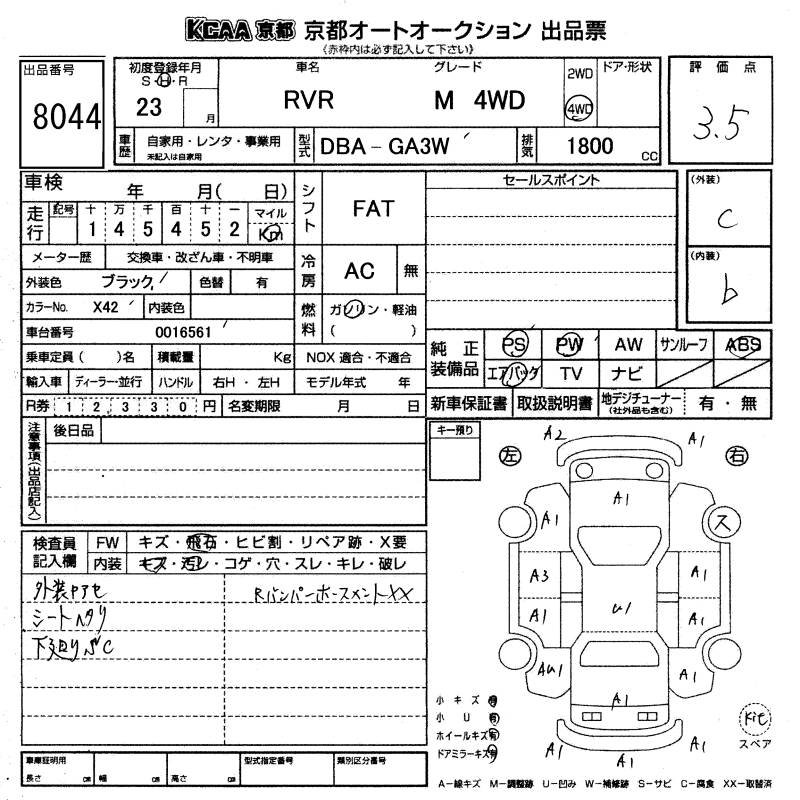 KCAA 京都 京都オートオークション 出品票
《赤枠内は必ず記入して下さい》
出品番号
8044
初度登録年月
S・H・R
23
月
車名
RVR
グレード
M 4WD
2WD
4WD
ドア・形状
評価点
3.5
車歴
自家用・レンタ・事業用
未記入は自家用
型式
DBA-GA3W
排気
1800
CC
車検
年 月( 日)
走行
記号 十 万 千 百 十 一 マイル
1 4 5 4 5 2 Km
メーター歴
交換車・改ざん車・不明車
外装色
ブラック
色替
有
カラーNo.
X42
内装色
車台番号
0016561
乗車定員( )名
積載量
Kg
輸入車
ディーラー・並行
ハンドル
右H・左H
R券
12,330円
名変期限
月 日
シフト
FAT
冷房
AC
無
燃料
ガソリン・軽油
( )
NOX 適合・不適合
モデル年式 年
セールスポイント
(外装)
C
(内装)
b
純正装備品
PS PW AW サンルーフ ABS
エアバッグ TV ナビ
新車保証書
取扱説明書
地デジチューナー
(社外品も含む)
有・無
注意事項(出品店記入)
後日品
キー預り
検査員記入欄
FW
キズ・飛石・ヒビ割・リペア跡・X要
内装
キズ・汚レ・コゲ・穴・スレ・キレ・破レ
外装クアセ
シートヘタリ
下廻りS C
Rバンパーホースメント××
左
右
A2
A1
A1
A1
ス
A3
A1
A1
U1
A1
AU1
A1
A1
A1
A1
A1
小キズ 有
小U 有
ホイールキズ 有
ドアミラーキズ 有
Kit
スペア
車庫証明用
長さ cm
幅 cm
高さ cm
型式指定番号
類別区分番号
A-線キズ M-調整跡 U-凹み W-補修跡 S-サビ C-腐食 XX-取替済